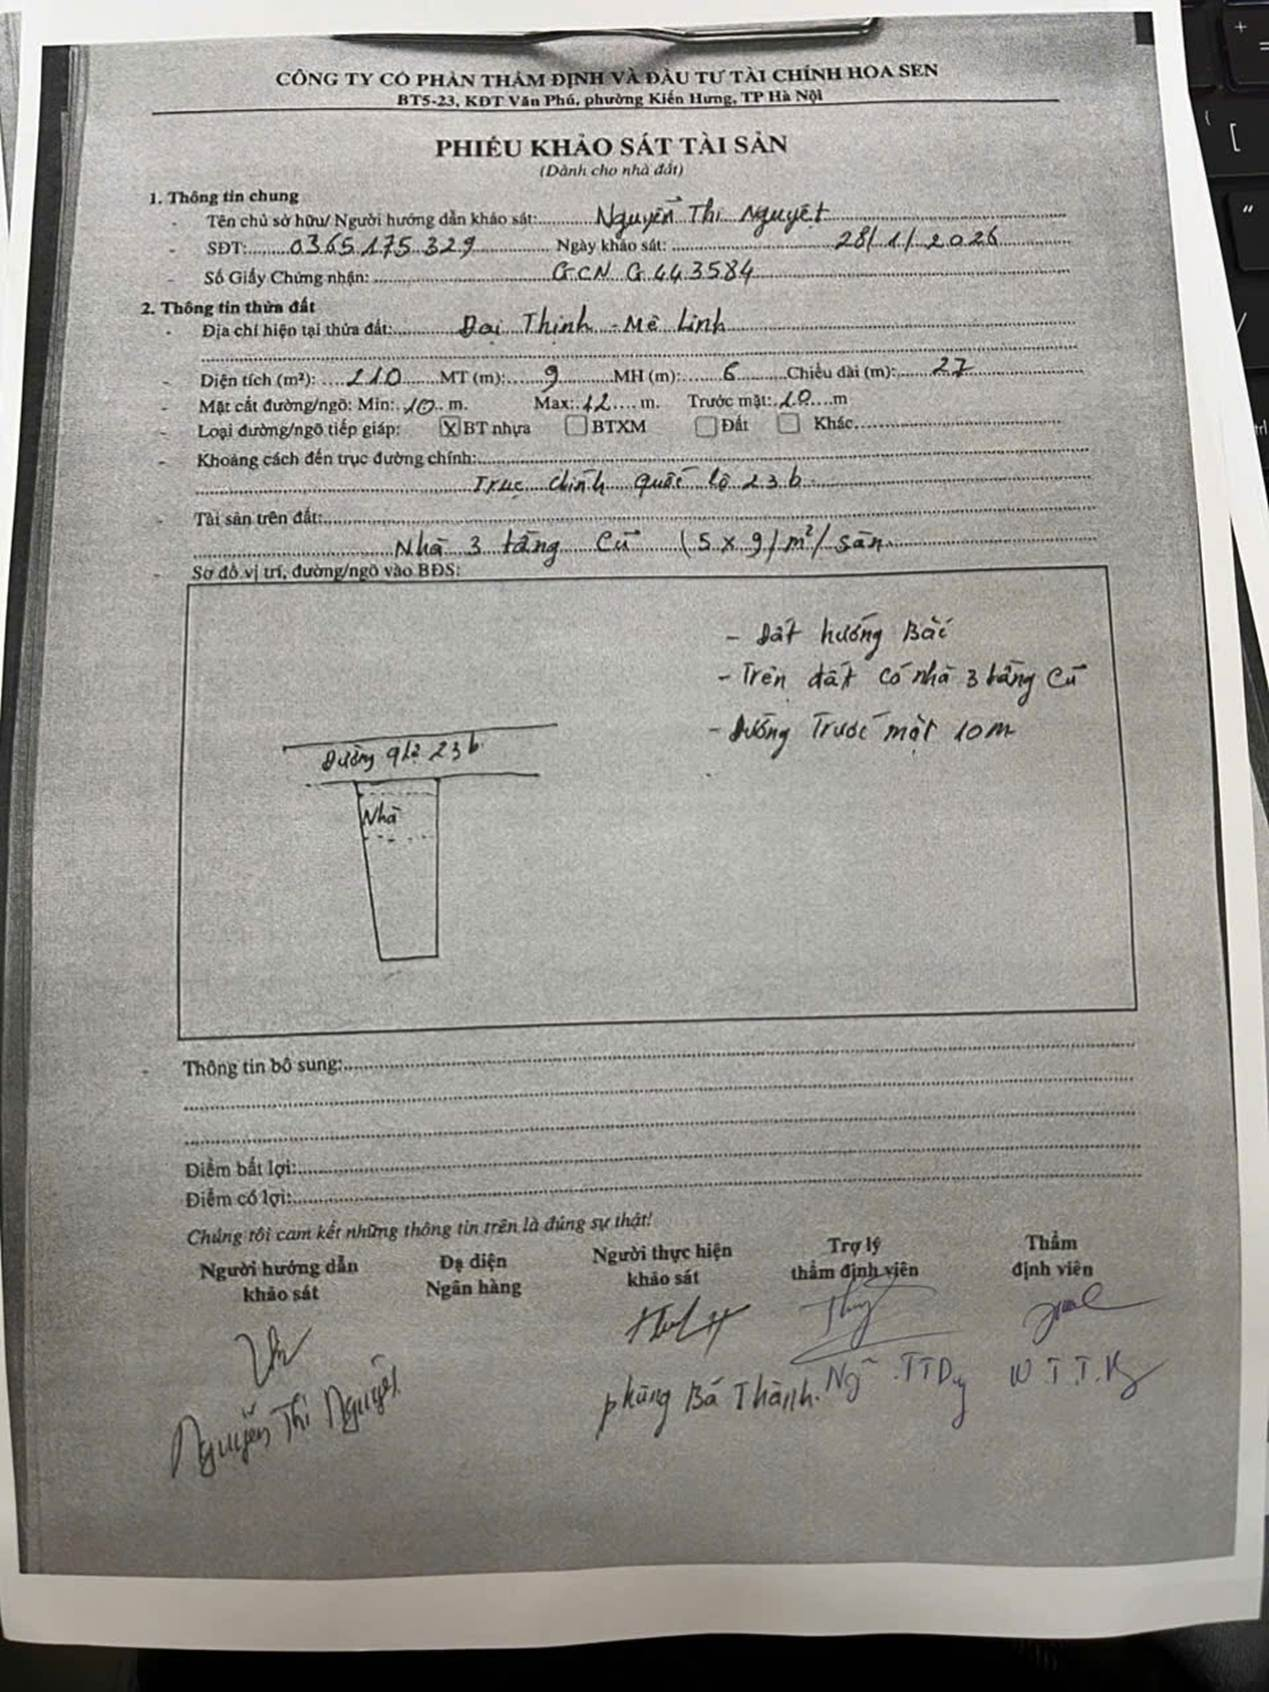 CÔNG TY CỔ PHẦN THẨM ĐỊNH VÀ ĐẦU TƯ TÀI CHÍNH HOA SEN
BT5-23, KĐT Văn Phú, phường Kiến Hưng, TP Hà Nội
PHIẾU KHẢO SÁT TÀI SẢN
(Dành cho nhà đất)
1. Thông tin chung
- Tên chủ sở hữu/ Người hướng dẫn khảo sát: Nguyễn Thị Nguyệt
- SĐT: 0365.175.329 Ngày khảo sát: 28/1/2026
- Số Giấy Chứng nhận: GCN G 443584
2. Thông tin thửa đất
- Địa chỉ hiện tại thửa đất: Đại Thịnh - Mê Linh
- Diện tích (m²): 210 MT (m): 9 MH (m): 6 Chiều dài (m): 27
- Mặt cắt đường/ngõ: Min: 10 m. Max: 12 m. Trước mặt: 10 m
- Loại đường/ngõ tiếp giáp: X BT nhựa BTXM Đất Khác
- Khoảng cách đến trục đường chính:
Trục chính quốc lộ 23b
- Tài sản trên đất:
Nhà 3 tầng cũ (5 x 9) m²/ sàn
- Sơ đồ vị trí, đường/ngõ vào BĐS:
- Đất hướng Bắc
- Trên đất có nhà 3 tầng cũ
- Đường Trước mặt 10m
Đường ql2 23b
Nhà
- Thông tin bổ sung:
Điểm bất lợi:
Điểm có lợi:
Chúng tôi cam kết những thông tin trên là đúng sự thật!
Người hướng dẫn khảo sát
Đạ diện Ngân hàng
Người thực hiện khảo sát
Trợ lý thẩm định viên
Thẩm định viên
Nguyễn Thị Nguyệt
Phùng Bá Thành